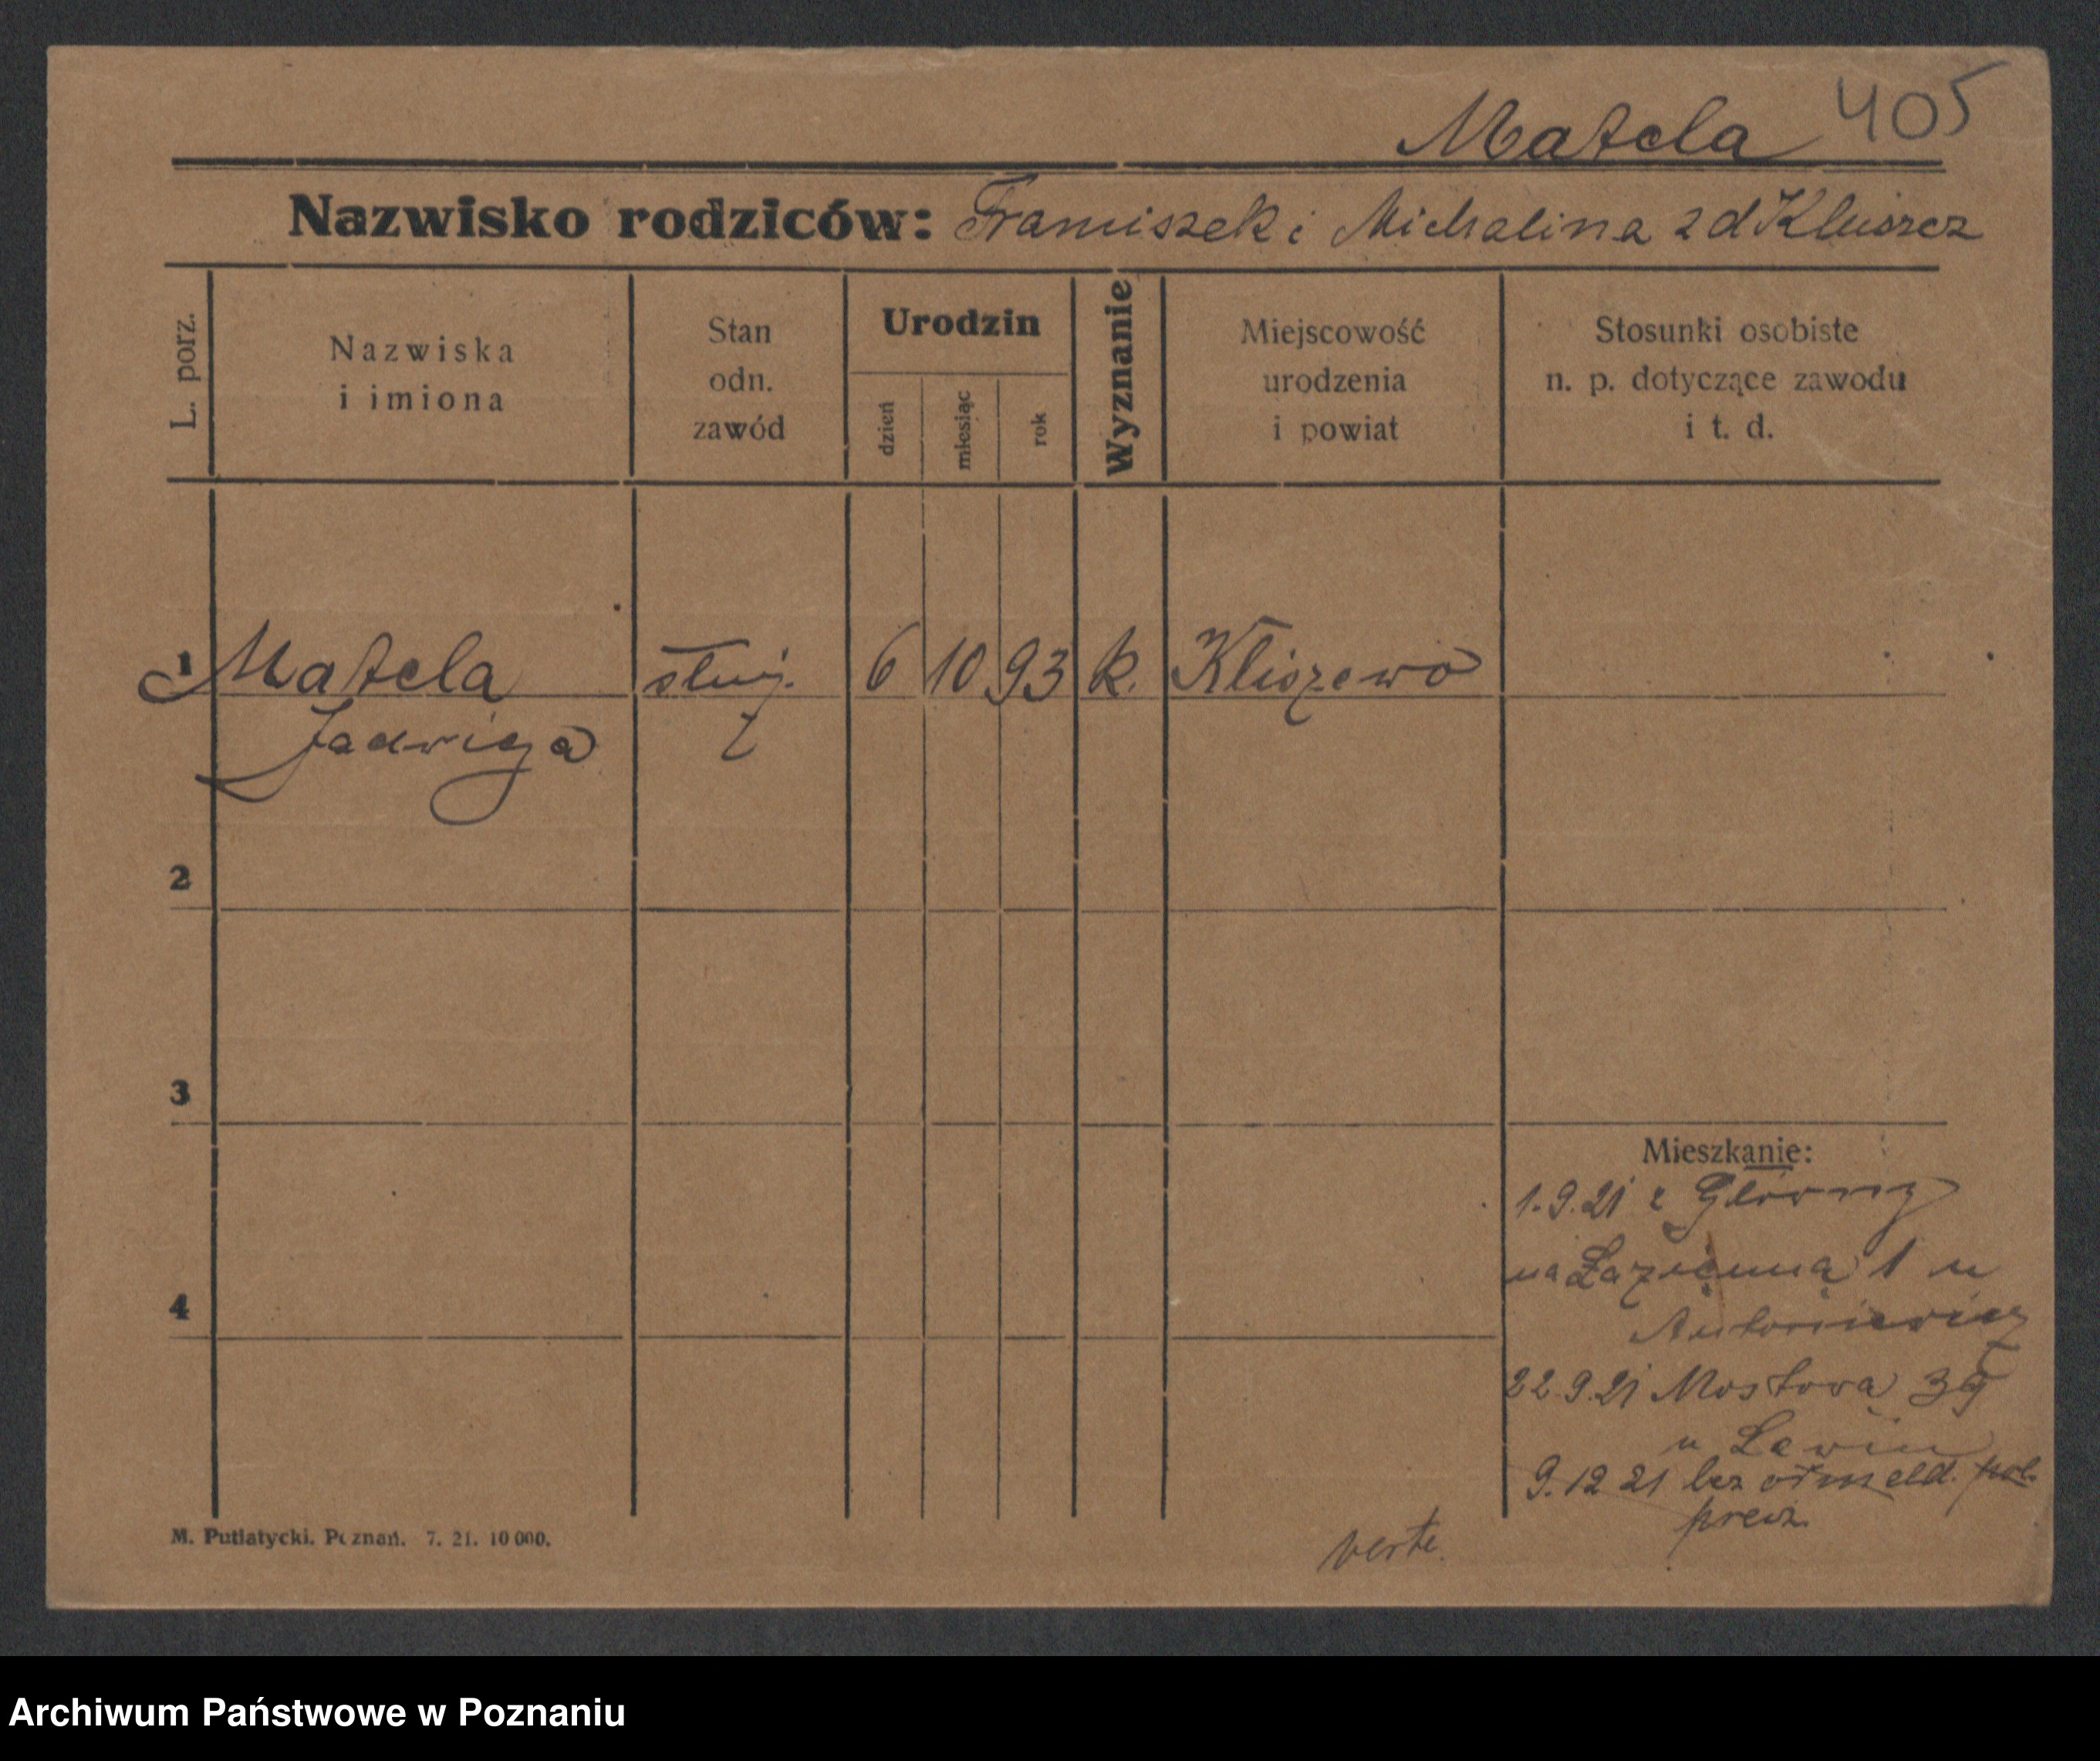 Matela 405
Nazwisko rodziców: Franciszek i Michalina z d
L. porz.
Nazwiska
i imiona
Stan
odn.
zawód
Urodzin
dzień
miesiąc
rok
Wyznanie
Miejscowość
urodzenia
i powiat
Stosunki osobiste
n. p. dotyczące zawodu
i t. d.
1 Matela służ. 6 10 93 k. Kliszewo
Jadwiga
2
3
4
Mieszkanie:
1.9.21 z Główny
na Łazienną 1 u
Antoniewicz
22.9.21 Mostowa
u
9.12 21 bez odmeld. pol.
verte.
M. Putiatycki. Poznań. 7. 21. 10 000.
Archiwum Państwowe w Poznaniu